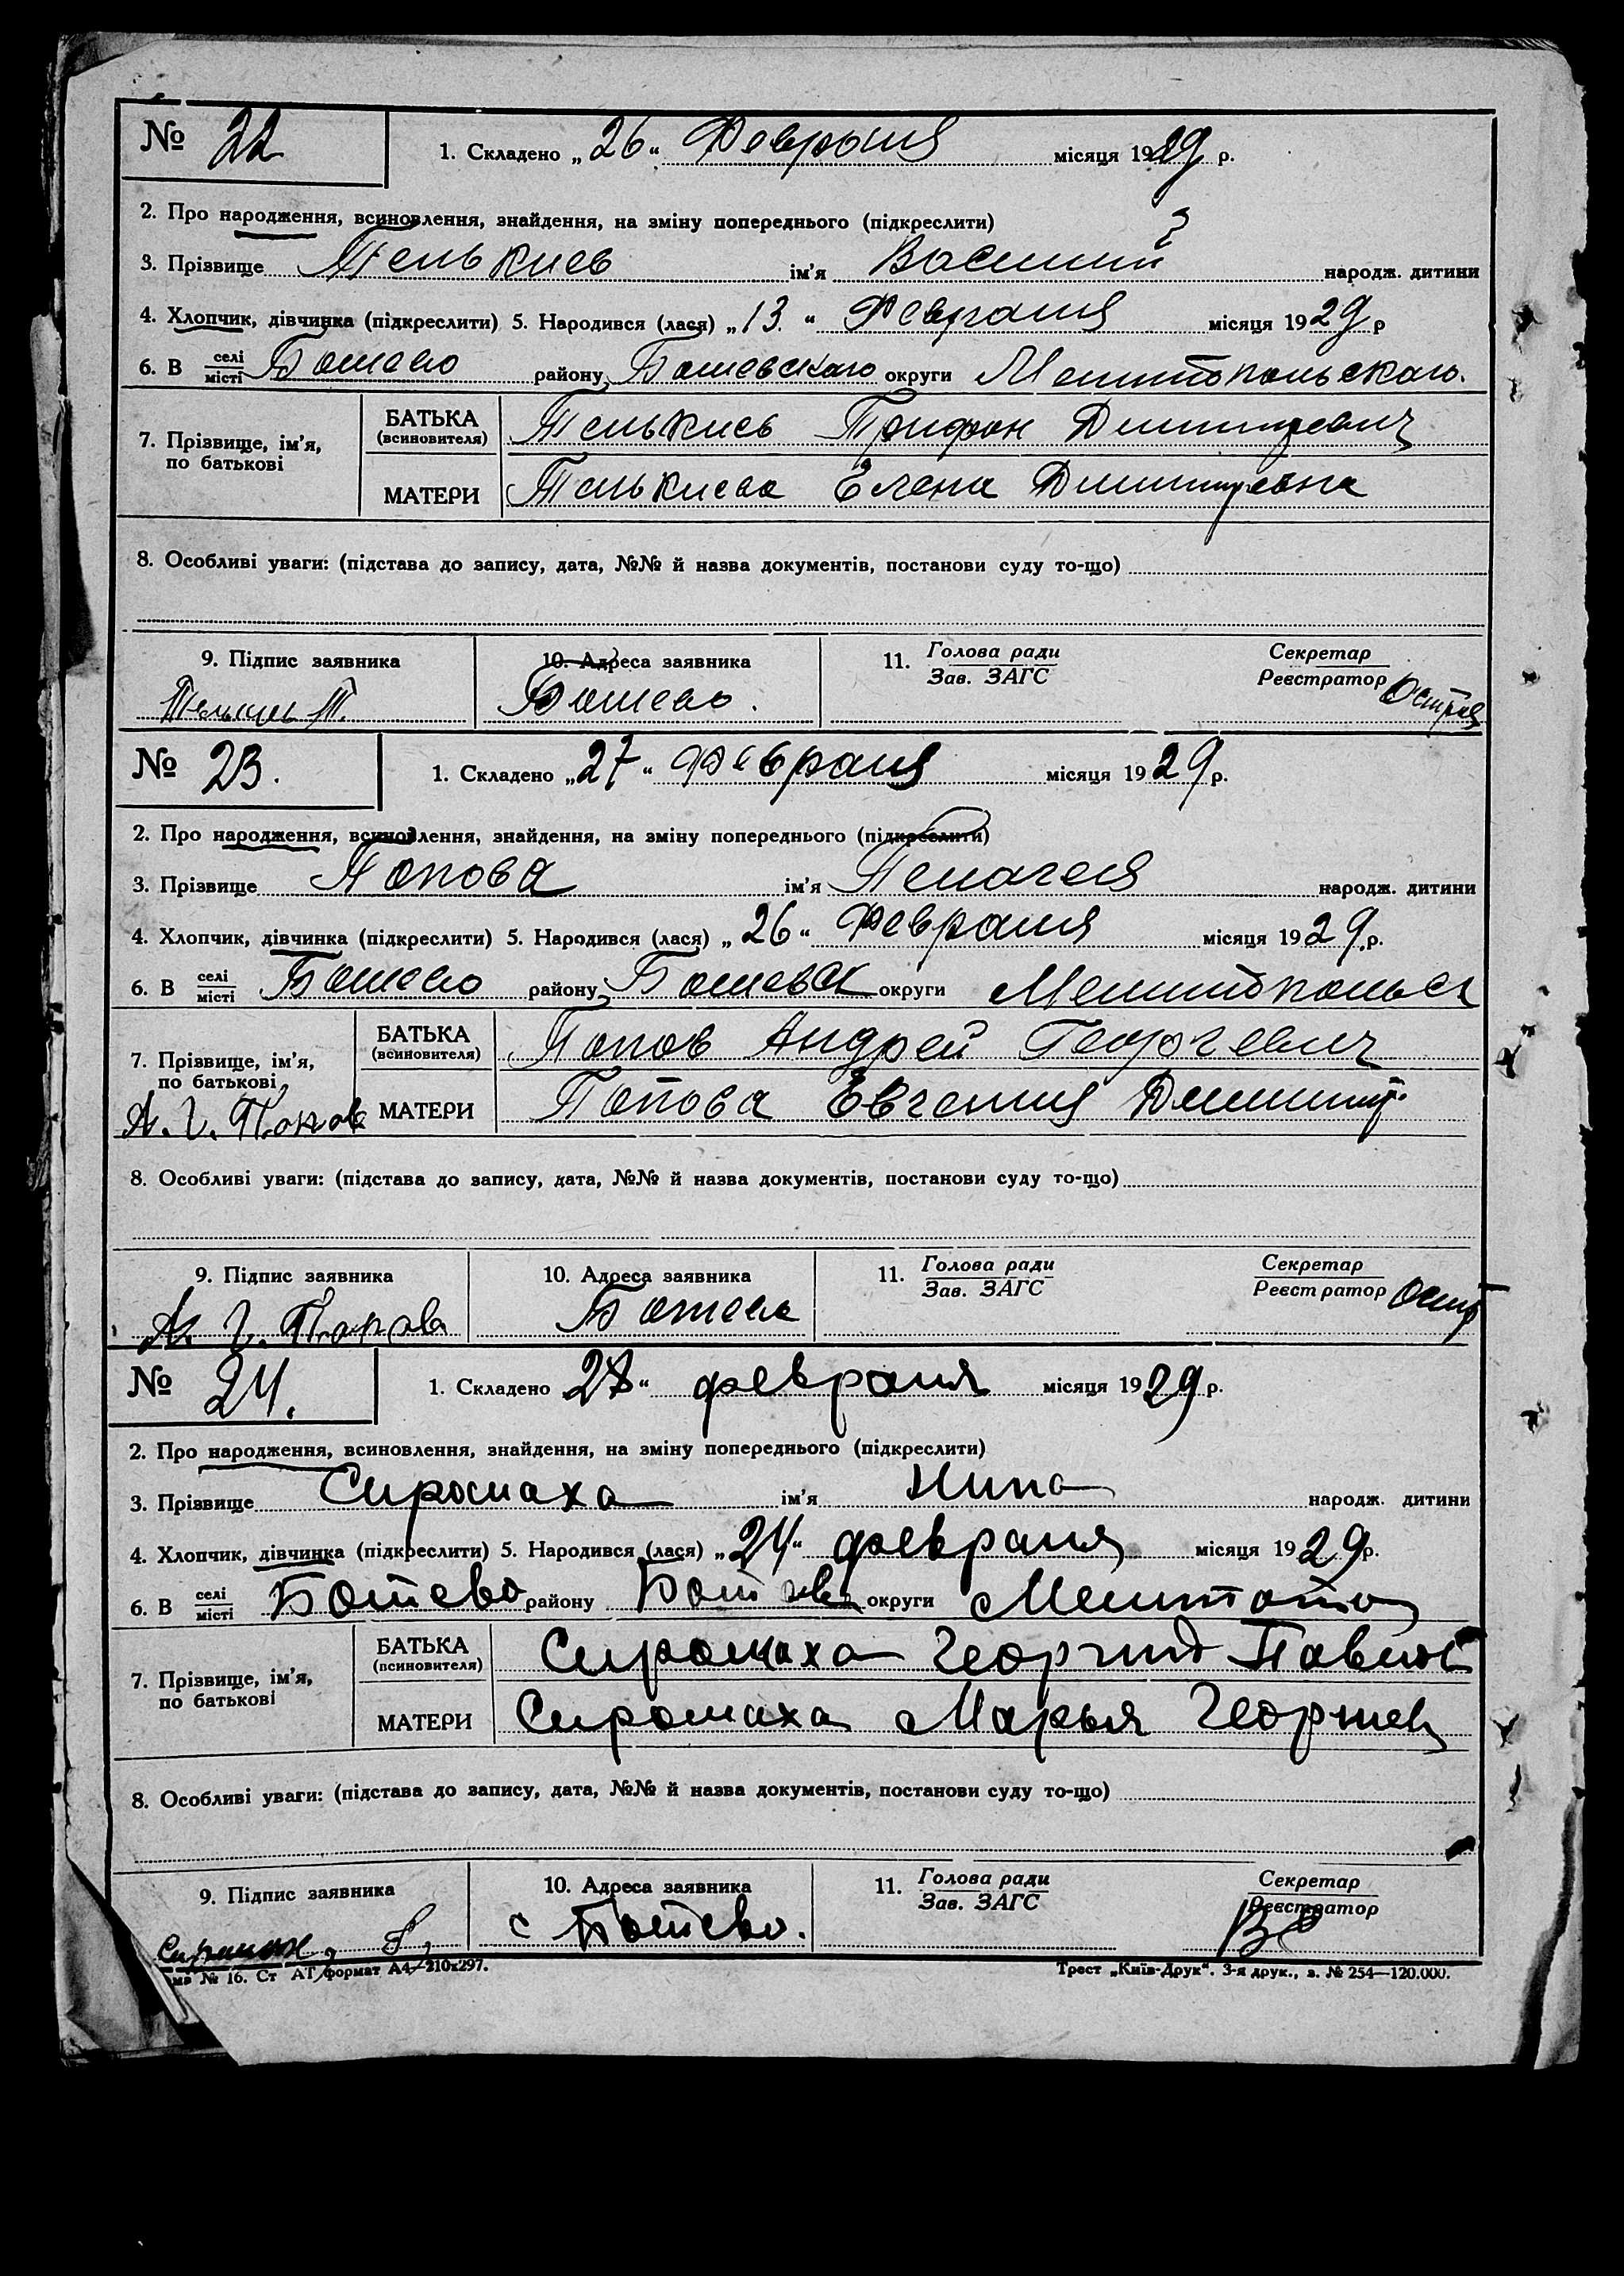 № 22 1. Складено „26“ Февраля місяця 1929 р.
2. Про народження, всиновлення, знайдення, на зміну попереднього (підкреслити)
3. Прізвище Пелькиев ім'я Василий народж. дитини
4. Хлопчик, дівчинка (підкреслити) 5. Народився (лася) „13.“ Февраля місяця 1929 р
6. В селі/місті Ботево району Ботевского округи Мелитопольского.
7. Прізвище, ім'я, по батькові БАТЬКА (всиновителя) Трифон Дмитриевич
МАТЕРИ Елена Дмитриевна
8. Особливі уваги: (підстава до запису, дата, №№ й назва документів, постанови суду то-що)
9. Підпис заявника 10. Адреса заявника 11. Голова ради Секретар
Зав. ЗАГС Реєстратор
Ботево.
№ 23. 1. Складено „27“ февраля місяця 1929 р.
2. Про народження, всиновлення, знайдення, на зміну попереднього (підкреслити)
3. Прізвище Попова ім'я Пелагея народж. дитини
4. Хлопчик, дівчинка (підкреслити) 5. Народився (лася) „26“ Февраля місяця 1929 р.
6. В селі/місті Ботево району Ботевск округи Мелитопольск
7. Прізвище, ім'я, по батькові БАТЬКА (всиновителя) Попов Андрей Георгевич
А. Г. Попов МАТЕРИ Попова Евгения Дмитр.
8. Особливі уваги: (підстава до запису, дата, №№ й назва документів, постанови суду то-що)
9. Підпис заявника 10. Адреса заявника 11. Голова ради Секретар
Зав. ЗАГС Реєстратор
А. Г. Попов Ботево
№ 24. 1. Складено 27“ февраля місяця 1929 р.
2. Про народження, всиновлення, знайдення, на зміну попереднього (підкреслити)
3. Прізвище Сиромаха ім'я Нина народж. дитини
4. Хлопчик, дівчинка (підкреслити) 5. Народився (лася) „24“ февраля місяця 1929 р.
6. В селі/місті Ботево району Ботев округи
7. Прізвище, ім'я, по батькові БАТЬКА (всиновителя) Сиромаха Георгий
МАТЕРИ Сиромаха Марья Георгиев
8. Особливі уваги: (підстава до запису, дата, №№ й назва документів, постанови суду то-що)
9. Підпис заявника 10. Адреса заявника 11. Голова ради Секретар
Зав. ЗАГС Реєстратор
с Ботево.
№ 16. Ст АТ формат А4—210x297. Трест „Київ-Друк“. 3-я друк., з. № 254—120.000.